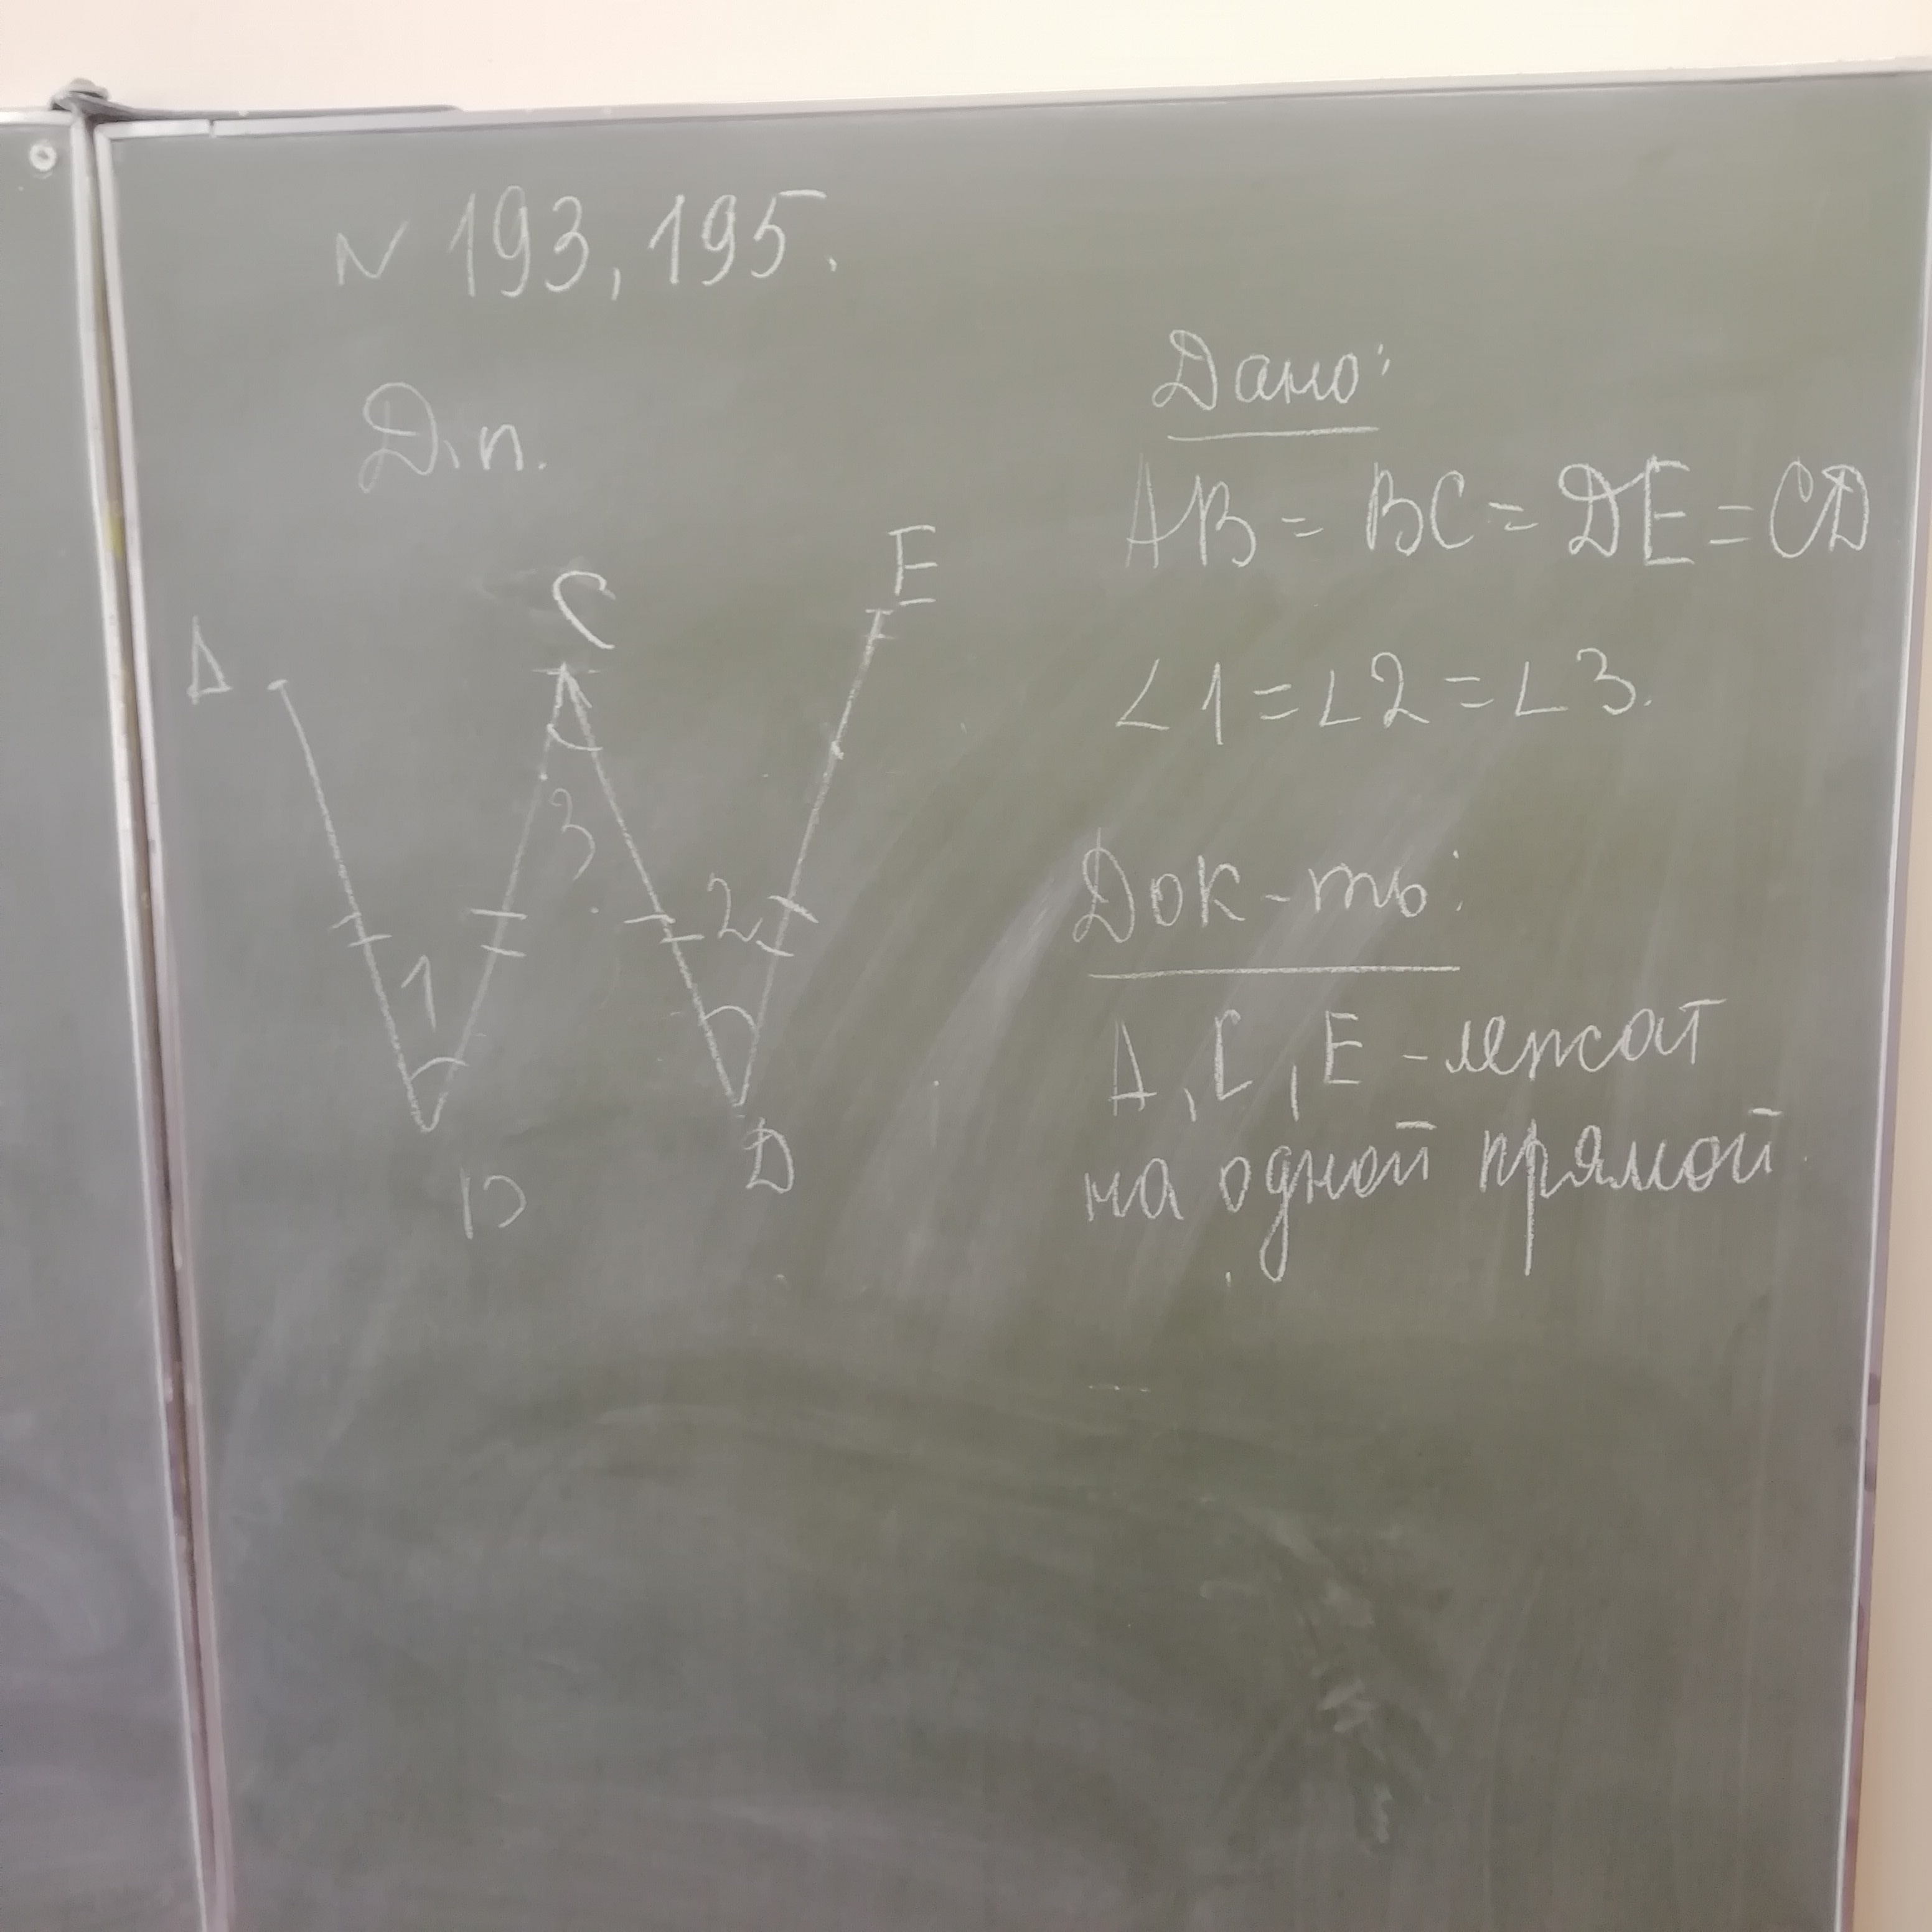 N 193, 195.
Д.п.
A
C
E
3
2
1
B
D
Дано:
AB = BC = DE = CD
∠1 = ∠2 = ∠3.
Док-ть:
A, C, E - лежат
на одной прямой